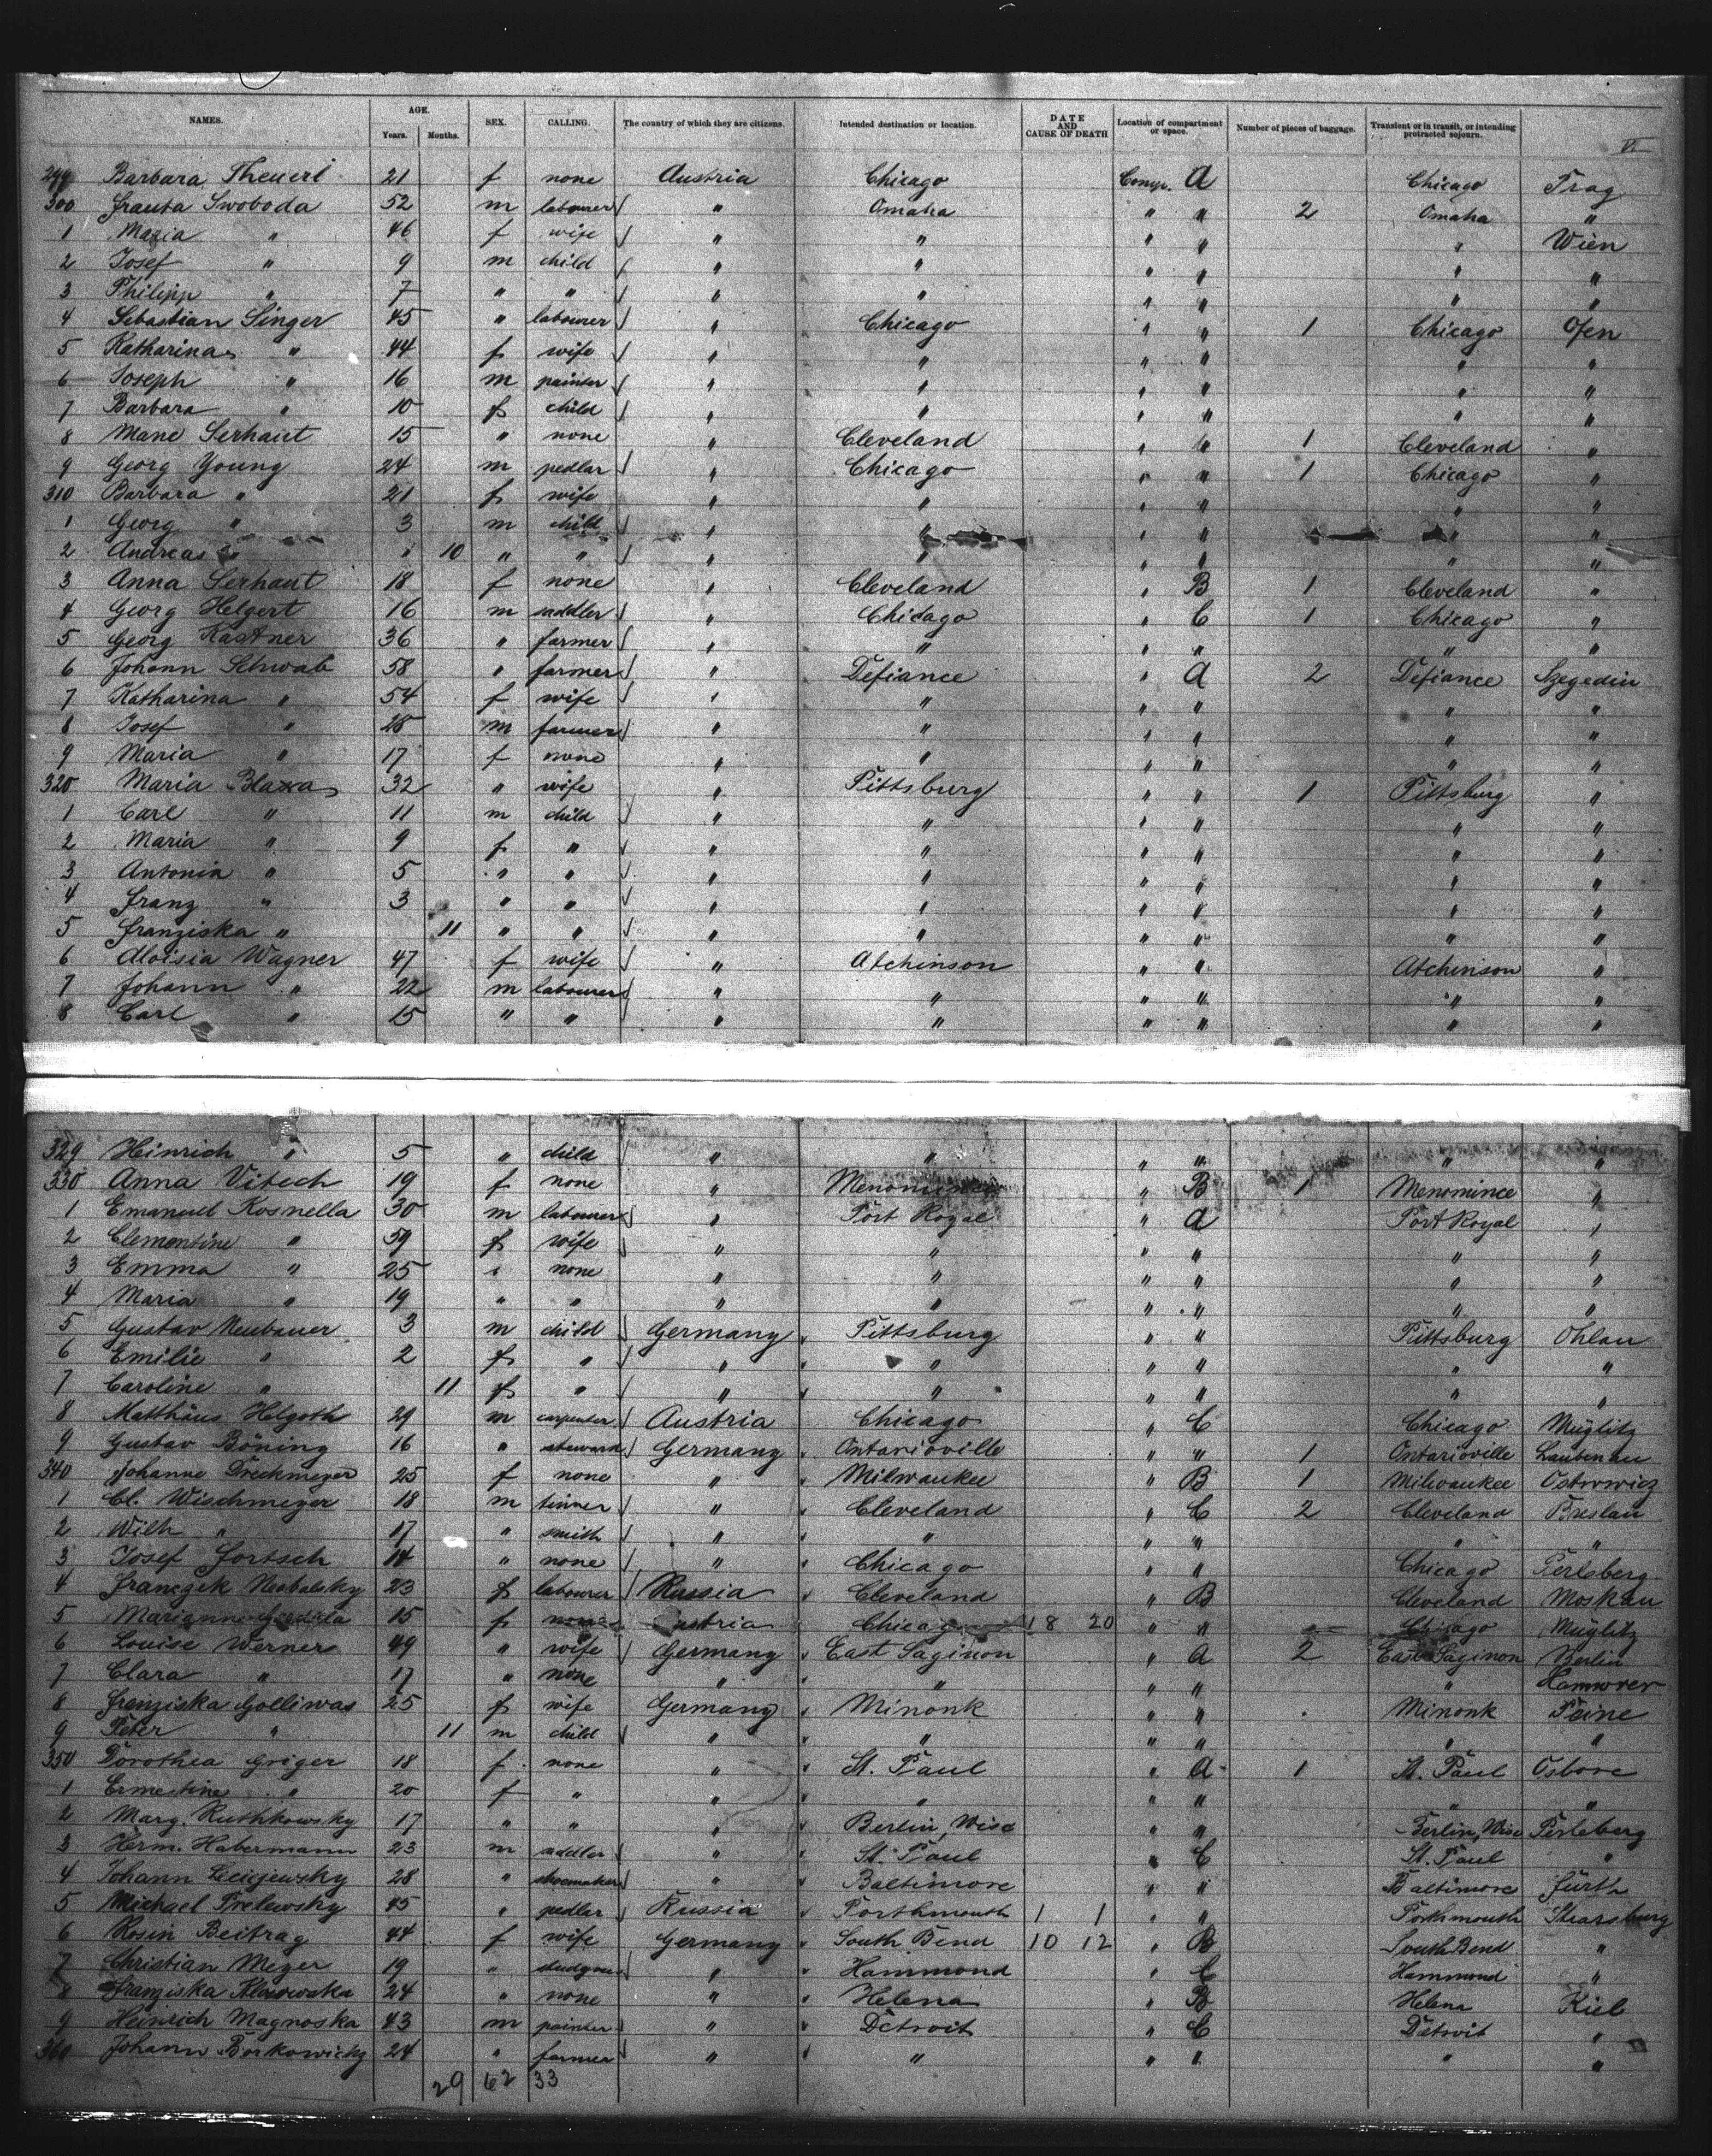 NAMES. AGE. Years. Months. SEX. CALLING. The country of which they are citizens. Intended destination or location. DATE AND CAUSE OF DEATH Location of compartment or space. Number of pieces of baggage. Transient or in transit, or intending protracted sojourn. VI
299 Barbara Theuerl 21 f none Austria Chicago Comp. A Chicago Prag
300 Franta Swoboda 52 m labourer " Omaha " " 2 Omaha "
1 Maria " 46 f wife " " " " " Wien
2 Josef " 9 m child " " " " " "
3 Philipp " 7 " " " " " " " "
4 Sebastian Singer 45 " labourer " Chicago " " 1 Chicago Ofen
5 Katharina " 44 f wife " " " " " "
6 Joseph " 16 m painter " " " " " "
7 Barbara " 10 f child " " " " " "
8 Marie Serhaut 15 " none " Cleveland " " 1 Cleveland "
9 Georg Young 24 m pedlar " Chicago " " 1 Chicago "
310 Barbara " 21 f wife " " " " " "
1 Georg " 3 m child " " " " " "
2 Andreas " " 10 " " " " " " " "
3 Anna Serhaut 18 f none " Cleveland " B 1 Cleveland "
4 Georg Helgert 16 m saddler " Chicago " C 1 Chicago "
5 Georg Kastner 36 " farmer " " " " " "
6 Johann Schwab 58 " farmer " Defiance " A 2 Defiance Szegedin
7 Katharina " 54 f wife " " " " " "
8 Josef " 28 m farmer " " " " " "
9 Maria " 17 f none " " " " " "
320 Maria Blaxa 32 " wife " Pittsburg " " 1 Pittsburg "
1 Carl " 11 m child " " " " " "
2 Maria " 9 f " " " " " " "
3 Antonia " 5 " " " " " " " "
4 Franz " 3 " " " " " " " "
5 Franziska " 11 " " " " " " " "
6 Aloisia Wagner 47 f wife " Atchinson " " Atchinson "
7 Johann " 22 m labourer " " " " " "
8 Carl " 15 " " " " " " " "
329 Heinrich " 5 " child " " " " " "
330 Anna Vitech 19 f none " Menominee " B 1 Menominee "
1 Emanuel Kosnella 30 m labourer " Port Royal " A Port Royal "
2 Clementine " 59 f wife " " " " " "
3 Emma " 25 " none " " " " " "
4 Maria " 19 " " " " " " " "
5 Gustav Neubauer 3 m child Germany Pittsburg " " Pittsburg Ohlau
6 Emilie " 2 f " " " " " " "
7 Caroline " 11 f " " " " " " "
8 Matthäus Helgoth 29 m carpenter Austria Chicago " C Chicago Müglitz
9 Gustav Böning 16 " steward Germany Ontarioville " " 1 Ontarioville Laubenau
340 Johanne Dreckmeyer 25 f none " Milwaukee " B 1 Milwaukee Osterwiez
1 Cl. Wischmeyer 18 m tinner " Cleveland " C 2 Cleveland Breslau
2 Wilh " 17 " smith " " " " " "
3 Josef Fortsch 14 " none " Chicago " " Chicago Perleberg
4 Franczek Neobalsky 23 f labourer Russia Cleveland " B Cleveland Moskau
5 Marianne 15 f none Austria Chicago 18 20 " " Chicago Müglitz
6 Louise Werner 49 " wife Germany East Saginon " A 2 East Saginon Berlin
7 Clara " 17 " none " " " " " Hannover
8 Franziska Golliwas 25 f wife Germany Minonk " " Minonk Peine
9 Peter " 11 m child " " " " " "
350 Dorothea Griger 18 f none " St. Paul " A 1 St. Paul Osbore
1 Ernestine " 20 f " " " " " " "
2 Marg. Ruthkowsky 17 " " " Berlin, Wisc " " Berlin, Wisc Perleberg
3 Herm. Habermann 23 m saddler " St. Paul " C St. Paul "
4 Johann Leciejewsky 28 " shoemaker " Baltimore " " Baltimore Fürth
5 Michael Prelewsky 45 " pedler Russia Porthmouth 1 1 " " Porthmouth Strassburg
6 Rosin Beitrag 44 f wife Germany South Bend 10 12 " B South Bend "
7 Christian Meyer 19 " " Hammond " C Hammond "
8 Franziska 24 " none " Helena " B Helena Kiel
9 Heinrich Magnoska 43 m painter " Detroit " C Detroit "
360 Johann Borkowicky 24 " farmer " " " " " "
29 62 33